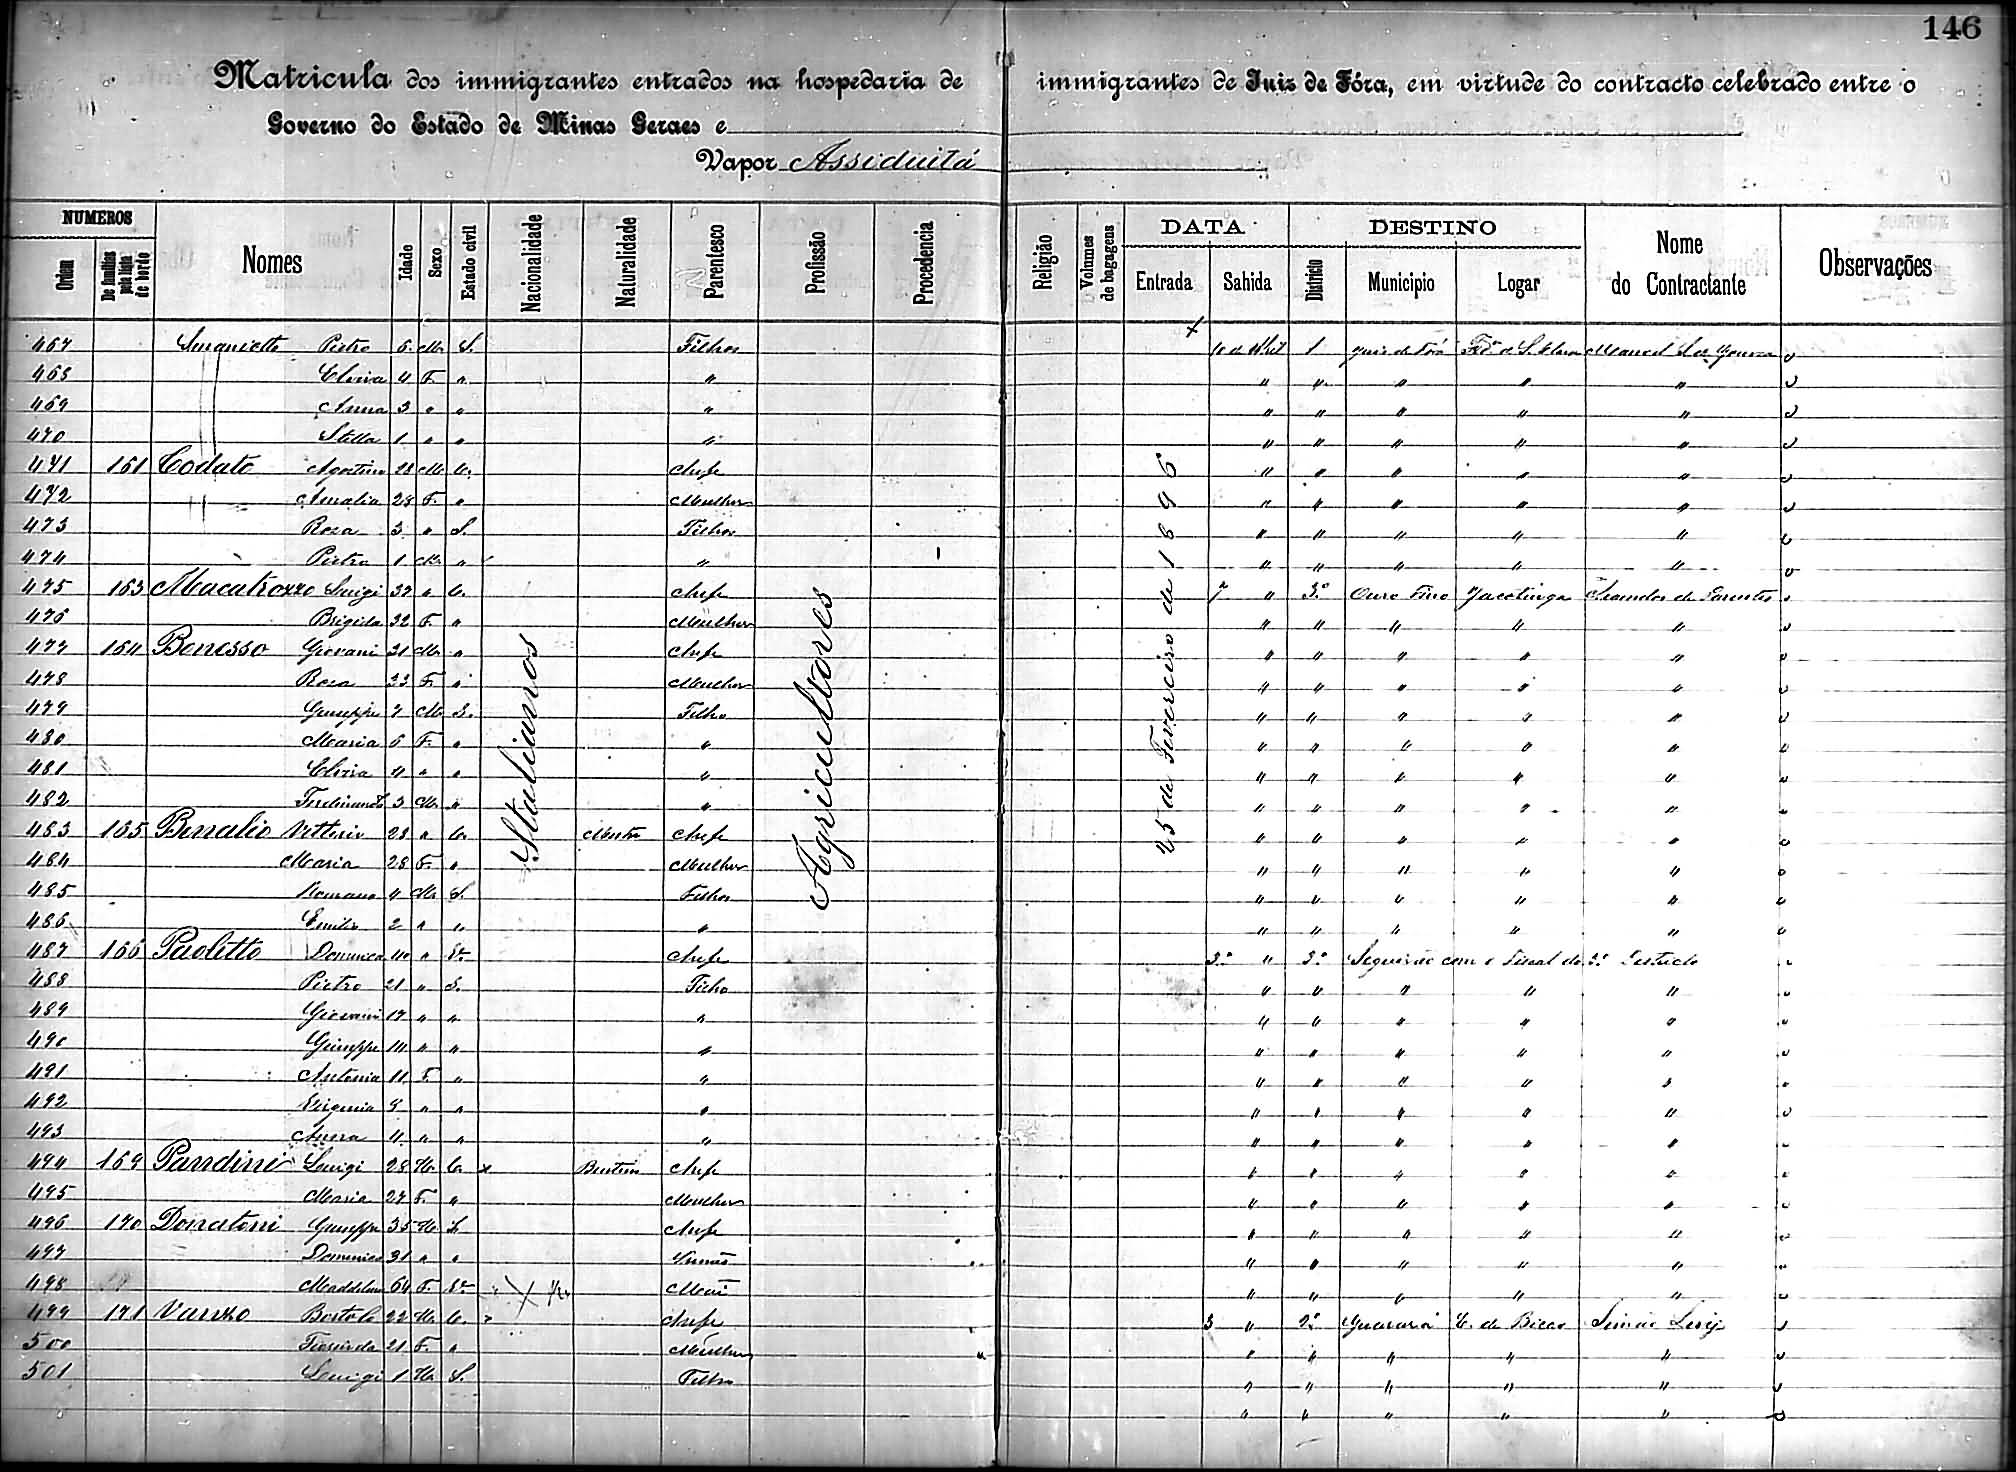 146
Matricula dos immigrantes entrados na hospedaria de immigrantes de Juiz de Fóra, em virtude do contracto celebrado entre o
Governo do Estado de Minas Geraes e
Vapor Assiduitá
NUMEROS DATA DESTINO
Ordem De familias pela lista de bordo Nomes Idade Sexo Estado civil Nacionalidade Naturalidade Parentesco Profissão Procedencia Religião Volumes de bagagens Entrada Sahida Districto Municipio Logar Nome do Contractante Observações
Italianos
Agricultores
25 de Fevereiro de 1896
467 Smanietto Pietro 6 M. S. Filhos 1 Juiz de Fóra Manoel
468 Elvira 4 F. " " " " " " "
469 Anna 3 " " " " " " " "
470 Stella 1 " " " " " " " "
471 161 Codato Agostino 28 M. C. Chefe " " " " "
472 Amalia 28 F. " Mulher " " " " "
473 Rosa 3 " S. Filhos " " " " "
474 Pietro 1 M. " " " " " " "
475 163 Macatrozzo Luigi 37 " C. Chefe 7 " 3º Ouro Fino Jacotinga
476 Brigida 32 F. " Mulher " " " " "
477 164 Benesso Giovani 31 M. " Chefe " " " " "
478 Rosa 33 F. " Mulher " " " " "
479 Giuseppe 7 M. S. Filho " " " " "
480 Maria 6 F. " " " " " " "
481 Elvira 4 " " " " " " " "
482 Ferdinando 3 M. " " " " " " "
483 165 Benalio Vittorio 28 " C. Chefe " " " " "
484 Maria 28 F. " Mulher " " " " "
485 Romano 4 M. S. Filhos " " " " "
486 Emilio 2 " " " " " " " "
487 166 Paoletto Domenico 40 " V. Chefe 3º " 3º Seguirão com o Fiscal do 3º Districto
488 Pietro 21 " S. Filho " " " " "
489 Giovanni 17 " " " " " " " "
490 Giuseppe 14 " " " " " " " "
491 Antonia 11 F. " " " " " " "
492 Virginia 8 " " " " " " " "
493 Anna 4 " " " " " " " "
494 169 Pandini Luigi 28 M. C. Chefe " " " " "
495 Maria 27 F. " Mulher " " " " "
496 170 Donatoni Giuseppe 35 M. S. Chefe " " " " "
497 Domenico 31 " " Irmão " " " " "
498 Maddalena 64 F. V. Mãi " " " " "
499 171 Vanzo Bortolo 22 M. C. Chefe 3 " 2º Guarará E. de Bicas
500 21 F. " Mulher " " " " "
501 Luigi 1 M. S. Filho " " " " "
" " " " "